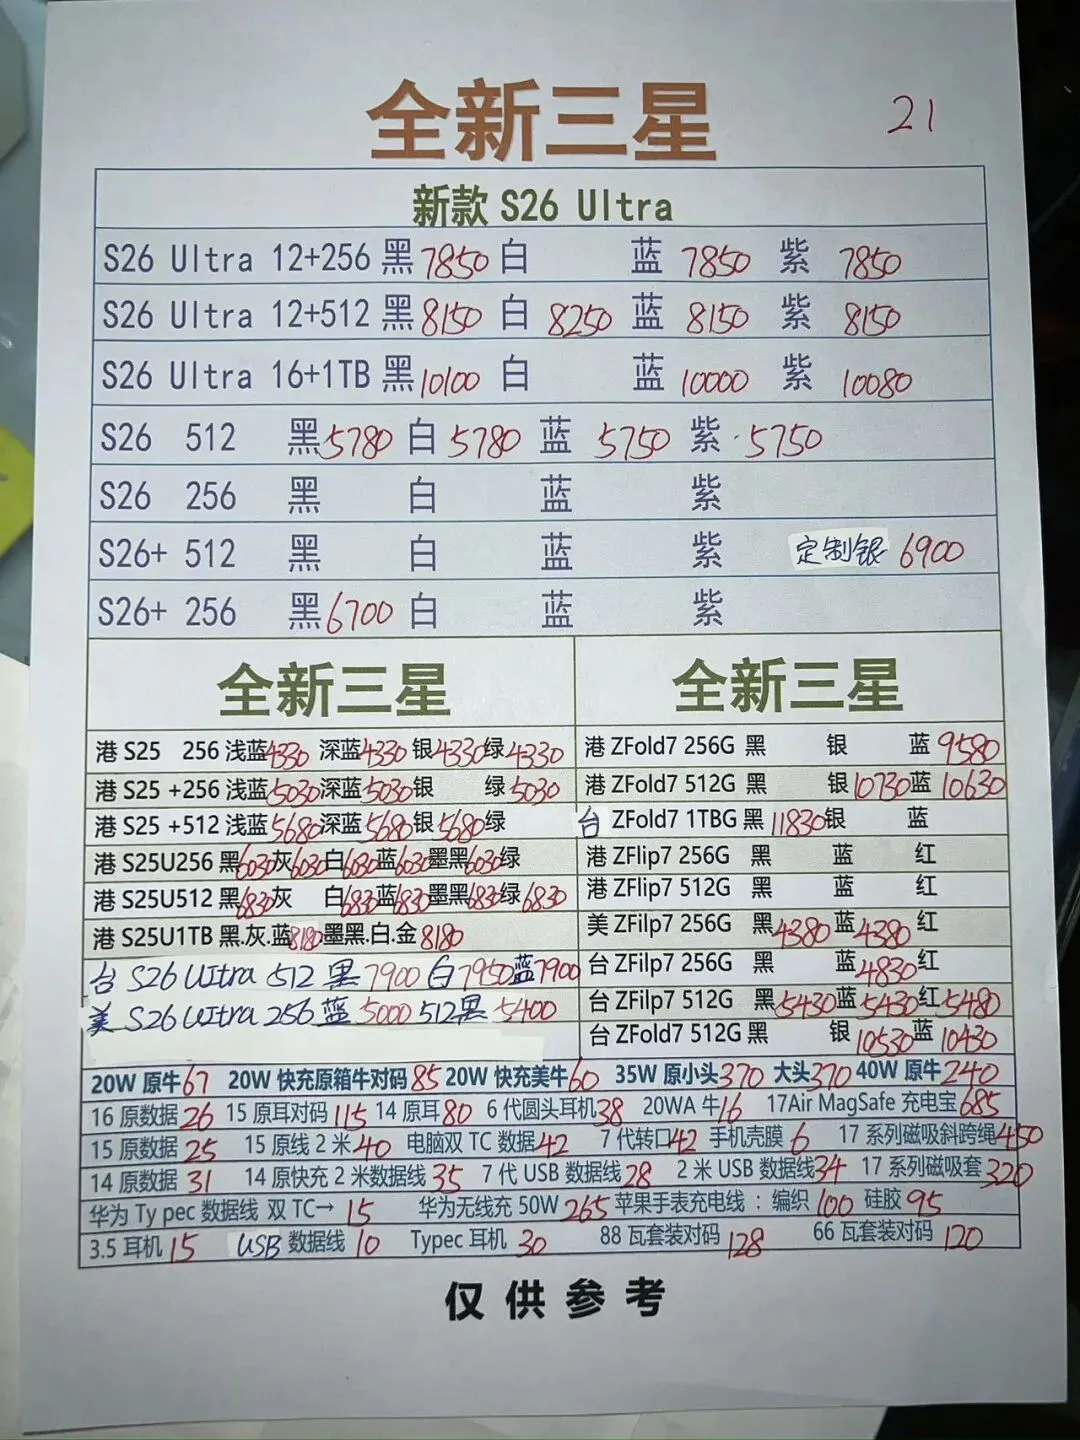 全新三星
21
新款 S26 Ultra
S26 Ultra 12+256 黑 7850 白 蓝 7850 紫 7850
S26 Ultra 12+512 黑 8150 白 8250 蓝 8150 紫 8150
S26 Ultra 16+1TB 黑 10100 白 蓝 10000 紫 10080
S26 512 黑 5780 白 5780 蓝 5750 紫 5750
S26 256 黑 白 蓝 紫
S26+ 512 黑 白 蓝 紫 定制银 6900
S26+ 256 黑 6700 白 蓝 紫
全新三星
港 S25 256 浅蓝 4330 深蓝 4330 银 4330 绿 4330
港 S25 +256 浅蓝 5030 深蓝 5030 银 绿 5030
港 S25 +512 浅蓝 5680 深蓝 5680 银 5680 绿
港 S25U256 黑 6030 灰 6030 白 6030 蓝 6030 墨黑 6030 绿
港 S25U512 黑 6830 灰 白 6830 蓝 6830 墨黑 6830 绿 6830
港 S25U1TB 黑.灰.蓝 8180 墨黑.白.金 8180
台 S26 Ultra 512 黑 7900 白 7950 蓝 7900
美 S26 Ultra 256 蓝 5000 512 黑 5400
全新三星
港 ZFold7 256G 黑 银 蓝 9580
港 ZFold7 512G 黑 银 10730 蓝 10630
台 ZFold7 1TBG 黑 11830 银 蓝
港 ZFlip7 256G 黑 蓝 红
港 ZFlip7 512G 黑 蓝 红
美 ZFilp7 256G 黑 4380 蓝 4380 红
台 ZFilp7 256G 黑 蓝 4830 红
台 ZFilp7 512G 黑 5430 蓝 5430 红 5480
台 ZFold7 512G 黑 银 10530 蓝 10430
20W 原牛 67 20W 快充原箱牛对码 85 20W 快充美牛 60 35W 原小头 370 大头 370 40W 原牛 240
16 原数据 26 15 原耳对码 115 14 原耳 80 6 代圆头耳机 38 20WA 牛 16 17Air MagSafe 充电宝 685
15 原数据 25 15 原线 2 米 40 电脑双 TC 数据 42 7 代转口 42 手机壳膜 6 17 系列磁吸斜跨绳 450
14 原数据 31 14 原快充 2 米数据线 35 7 代 USB 数据线 28 2 米 USB 数据线 34 17 系列磁吸套 320
华为 Ty pec 数据线 双 TC→ 15 华为无线充 50W 265 苹果手表充电线 : 编织 100 硅胶 95
3.5 耳机 15 USB 数据线 10 Typec 耳机 30 88 瓦套装对码 128 66 瓦套装对码 120
仅供参考